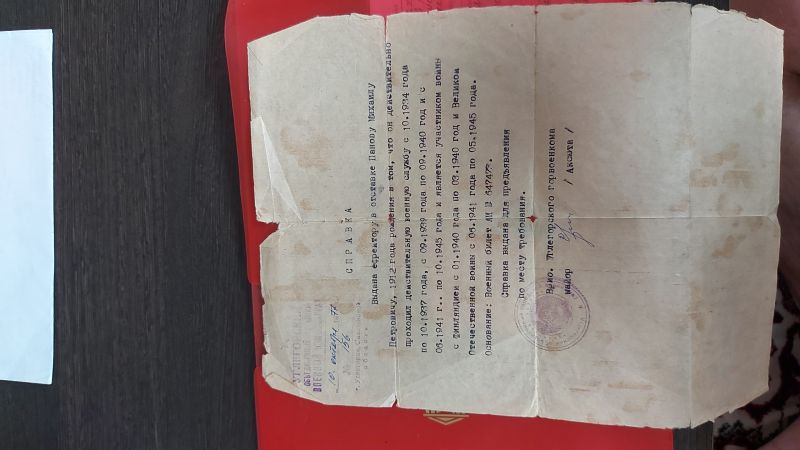 УГЛЕГОРСКИЙ
ОБЪЕДИНЕННЫЙ
ВОЕННЫЙ
10 октября 1977
№ 156
г. Углегорск, Сахалинской
области.
СПРАВКА
Выдана ефрейтору в отставке Панову Михаилу
Петровичу, 1912 года рождения в том, что он действительно
проходил действительную военную службу с 10.1934 года
по 10.1937 года, с 09.1939 года по 09.1940 год и с
06.1941 г.. по 10.1945 года и является участником войны
с Финляндией с 01.1940 года по 03.1940 год и Великой
Отечественной войны с 06.1941 года по 05.1945 года.
Основание: Военный билет АН №
Справка выдана для предъявления
по месту требования.
Врио. Углегорского горвоенкома
майор / Аксюта /